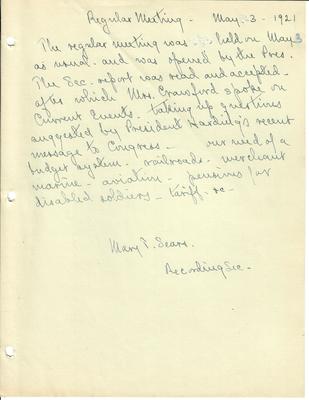 Regular Meeting - May 3 - 1921
The regular meeting was held on May 3
as usual - and was opened by the Pres.
The Sec. report was read and accepted -
after which Mrs. Crawford spoke on
Current Events. taking up questions
suggested by President Harding's recent
message to Congress - our need of a
budget system - railroads - merchant
marine - aviation - pensions for
disabled soldiers - tariff - &c -
Mary P. Sears.
Recording Sec -